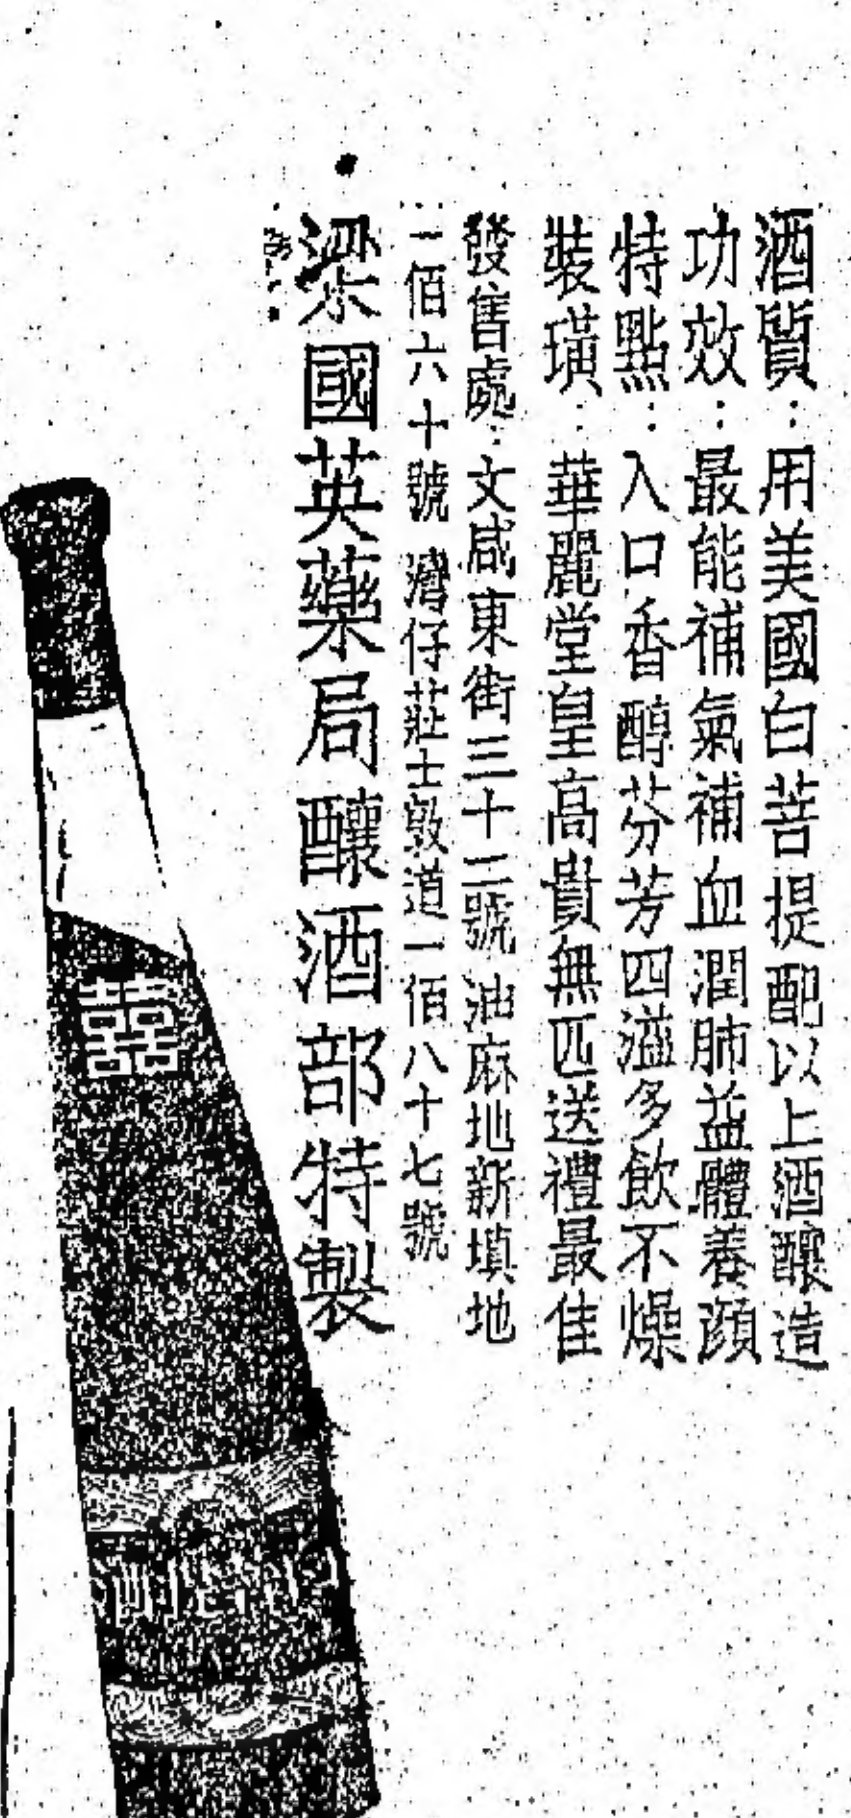 酒質：用美國白菩提配以上酒釀造
功效：最能補氣補血潤肺益體養顏
特點：入口香醇芬芳四溢多飲不燥
裝璜：華麗堂皇高貴無匹送禮最佳
發售處：文咸東街三十二號 油麻地新填地
一佰六十號 灣仔莊士敦道一佰八十七號
梁國英藥局釀酒部特製
囍